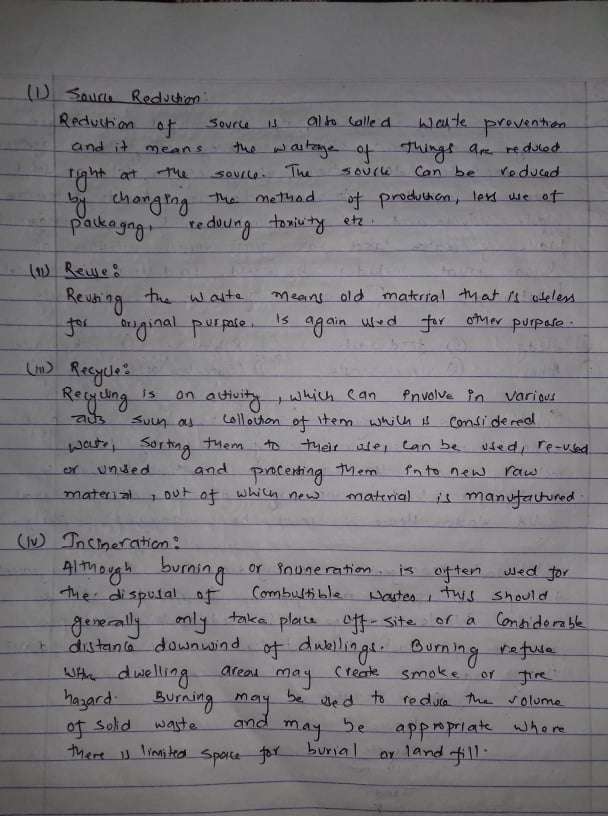 (i) Source Reduction:
Reduction of source is also called waste prevention
and it means the wastage of things are reduced
right at the source. The source can be reduced
by changing the method of production, less use of
packagng, reducing toxicity etc.
(ii) Reuse:
Reusing the waste means old material that is useless
for original purpose, is again used for other purpose.
(iii) Recycle:
Recycling is an activity, which can involve in various
acts such as collection of item which is considered
waste, sorting them to their use, can be used, re-used
or unused and processing them into new raw
material, out of which new material is manufactured.
(iv) Incineration:
Although burning or incineration is often used for
the disposal of combustible wastes, this should
generally only take place off-site or a considerable
distance downwind of dwellings. Burning refuse
within dwelling areas may create smoke or fire
hazard. Burning may be used to reduce the volume
of solid waste and may be appropriate where
there is limited space for burial or land fill.